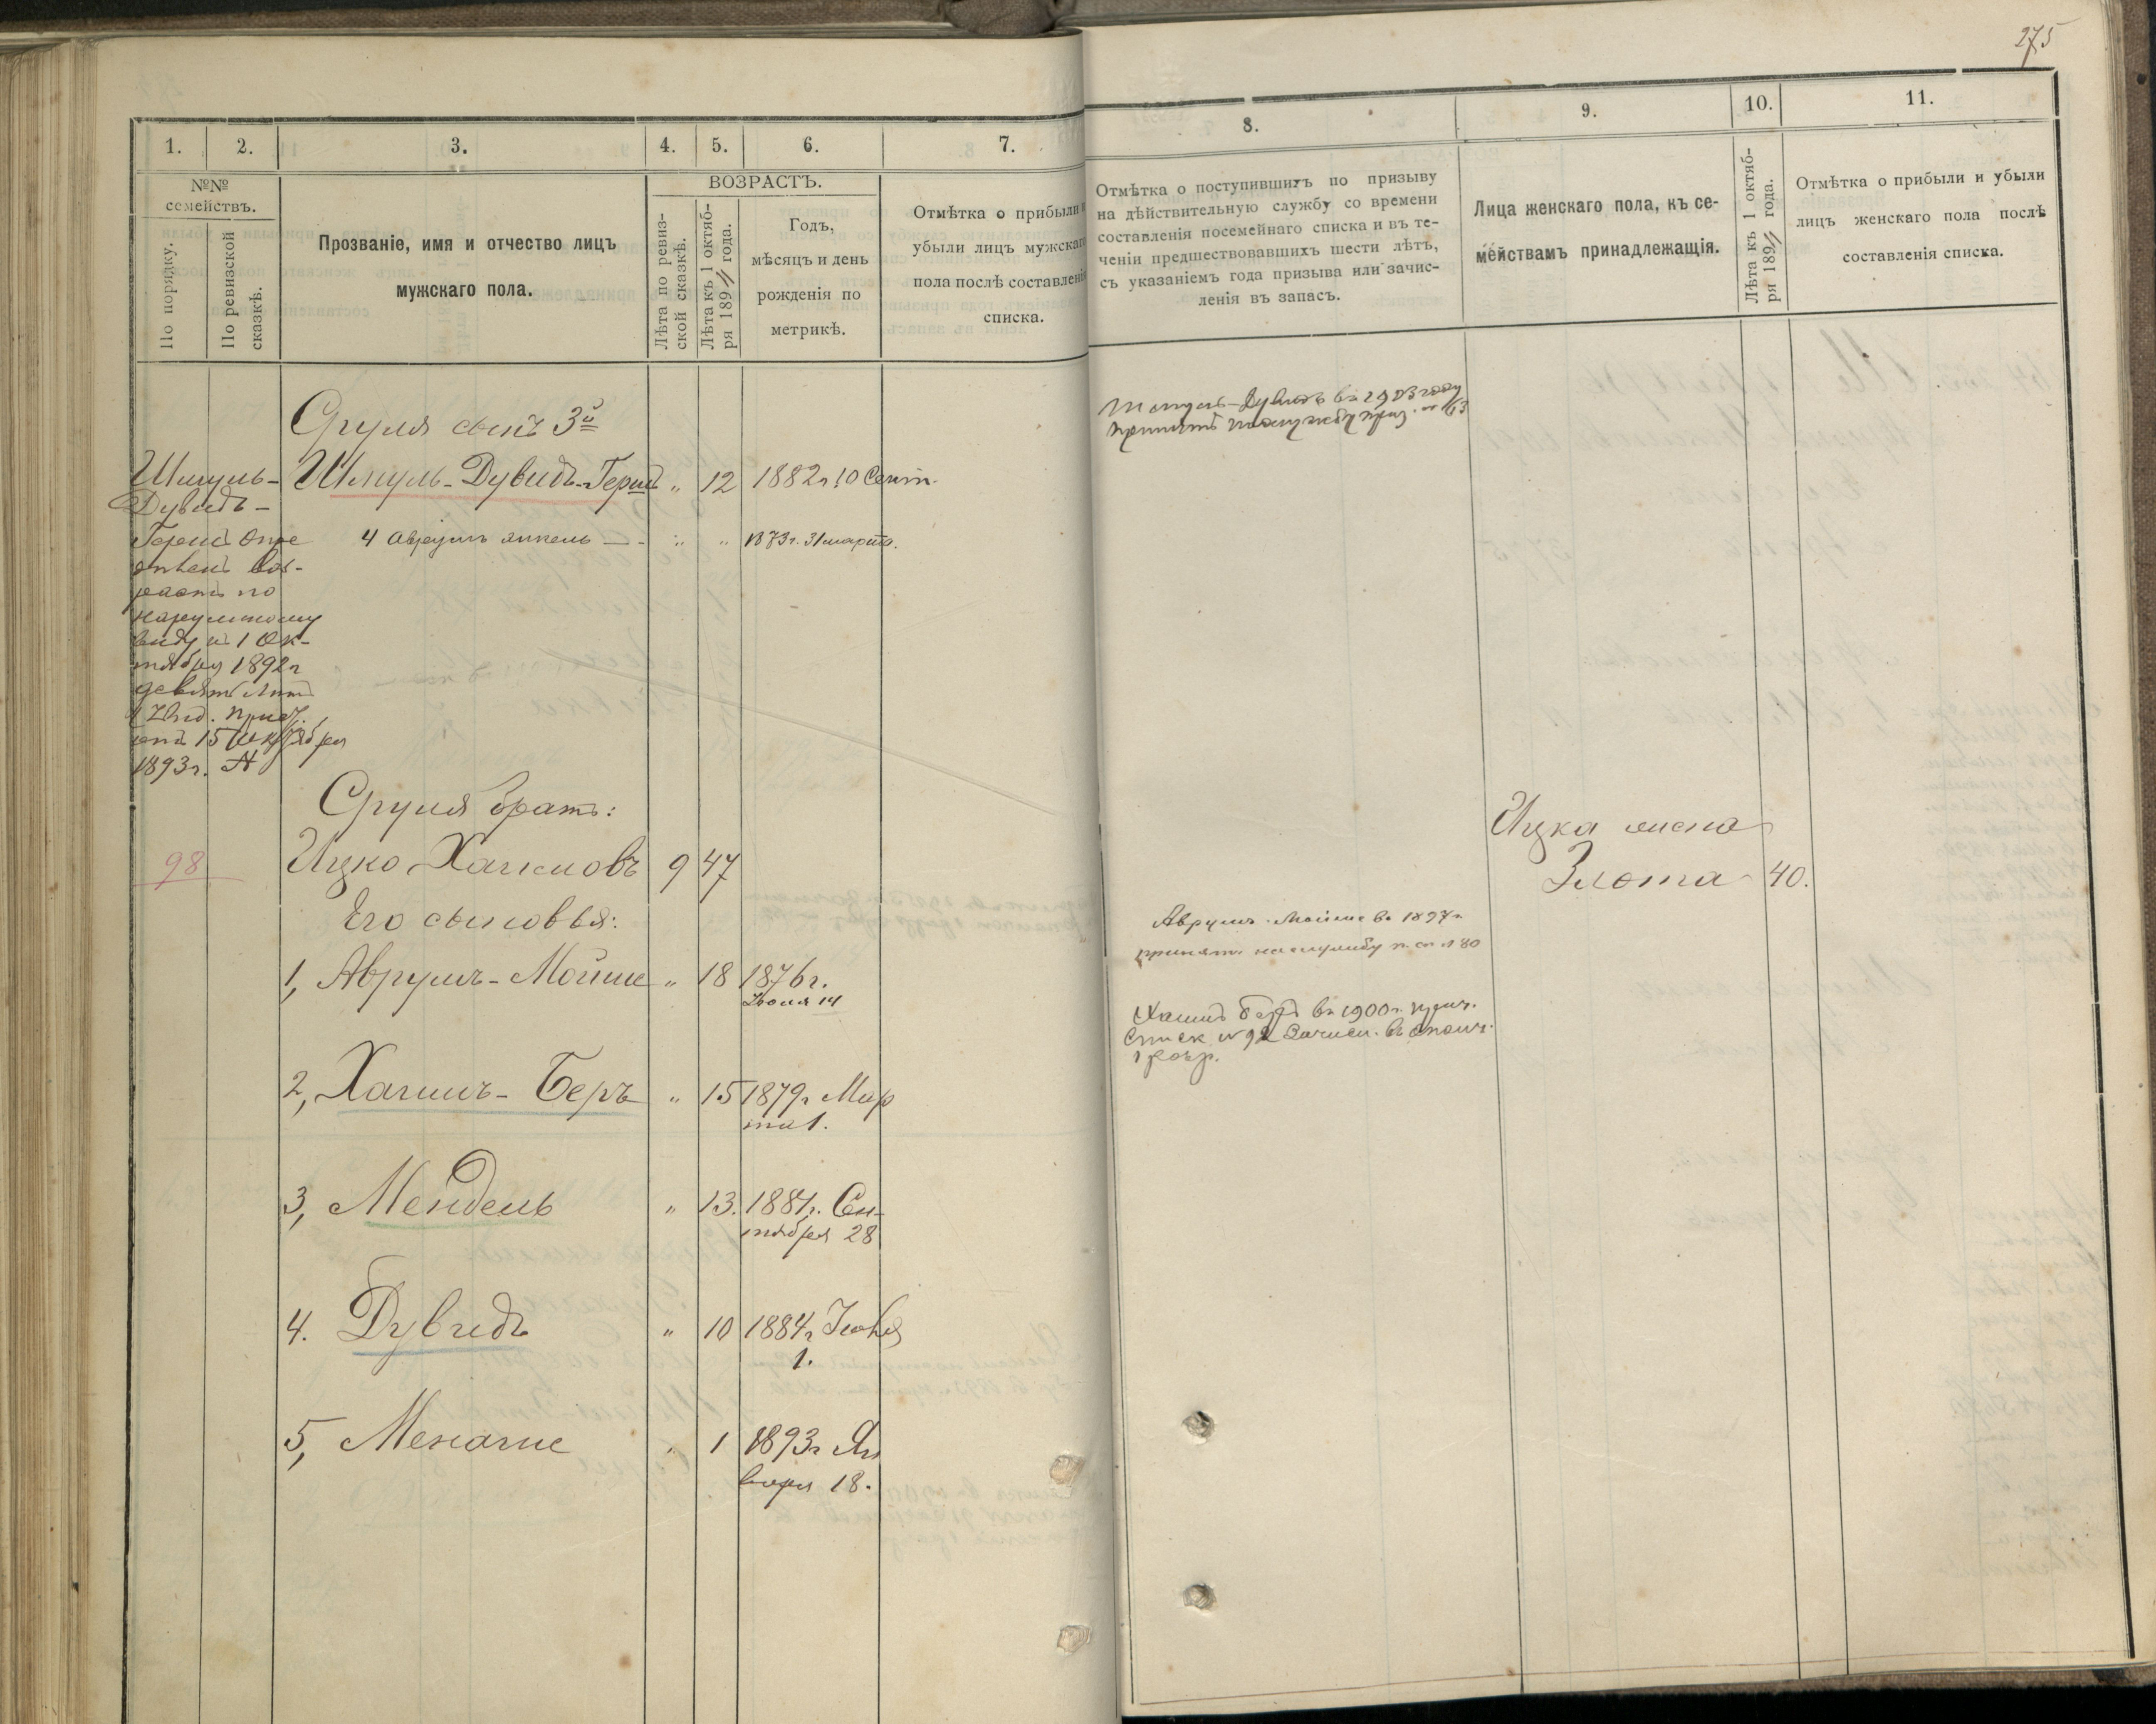 275
1.
2.
3.
4.
5.
6.
7.
8.
9.
10.
11.
№№
семействъ.
По порядку.
По ревизской
сказкѣ.
Прозваніе, имя и отчество лицъ
мужскаго пола.
ВОЗРАСТЪ.
Лѣта по ревиз-
ской сказкѣ.
Лѣта къ 1 октяб-
ря 1894 года.
Годъ,
мѣсяцъ и день
рожденія по
метрикѣ.
Отмѣтка о прибыли и
убыли лицъ мужскаго
пола послѣ составленія
списка.
Отмѣтка о поступившихъ по призыву
на дѣйствительную службу со времени
составленія посемейнаго списка и въ те-
ченіи предшествовавшихъ шести лѣтъ,
съ указаніемъ года призыва или зачис-
ленія въ запасъ.
Лица женскаго пола, къ се-
мействамъ принадлежащія.
Лѣта къ 1 октяб-
ря 1894 года.
Отмѣтка о прибыли и убыли
лицъ женскаго пола послѣ
составленія списка.
Сруля сынъ 3й
Шмуль-Дувидъ-Гершъ " 12 1882 г. 10 Сент.
4 Аврумъ Янкель — " " 1873 г. 31 марта.
Шмуль-
Дувидъ-
Гершъ опре
дѣленъ воз-
растъ по
наружному
виду къ 1 Ок-
тября 1892 г
девять лѣтъ
прис.
отъ 15 Октября
1893 г. №
Шмуль-Дувидъ въ 1903 году
принятъ на службу приз. № 63
Сруля братъ:
98 Ицко Хаимовъ 9 47
Ицка жена
Злота 40.
Его сыновья:
1, Аврумъ-Мойше " 18 1876 г.
Июля 14
Аврумъ-Мойше въ 1897 г.
принятъ на службу п. сп. № 80
2, Хаимъ-Беръ " 15 1879 г. Мар
та 1.
Хаимъ Беръ въ 1900 г. приз.
списк. № 92 Зачисл. въ ополч.
1 разр.
3, Мендель " 13. 1881 г. Сен-
тября 28
4. Дувидъ " 10 1884 г.
1.
5, Менаше " 1 1893 г. Ян
варя 18.